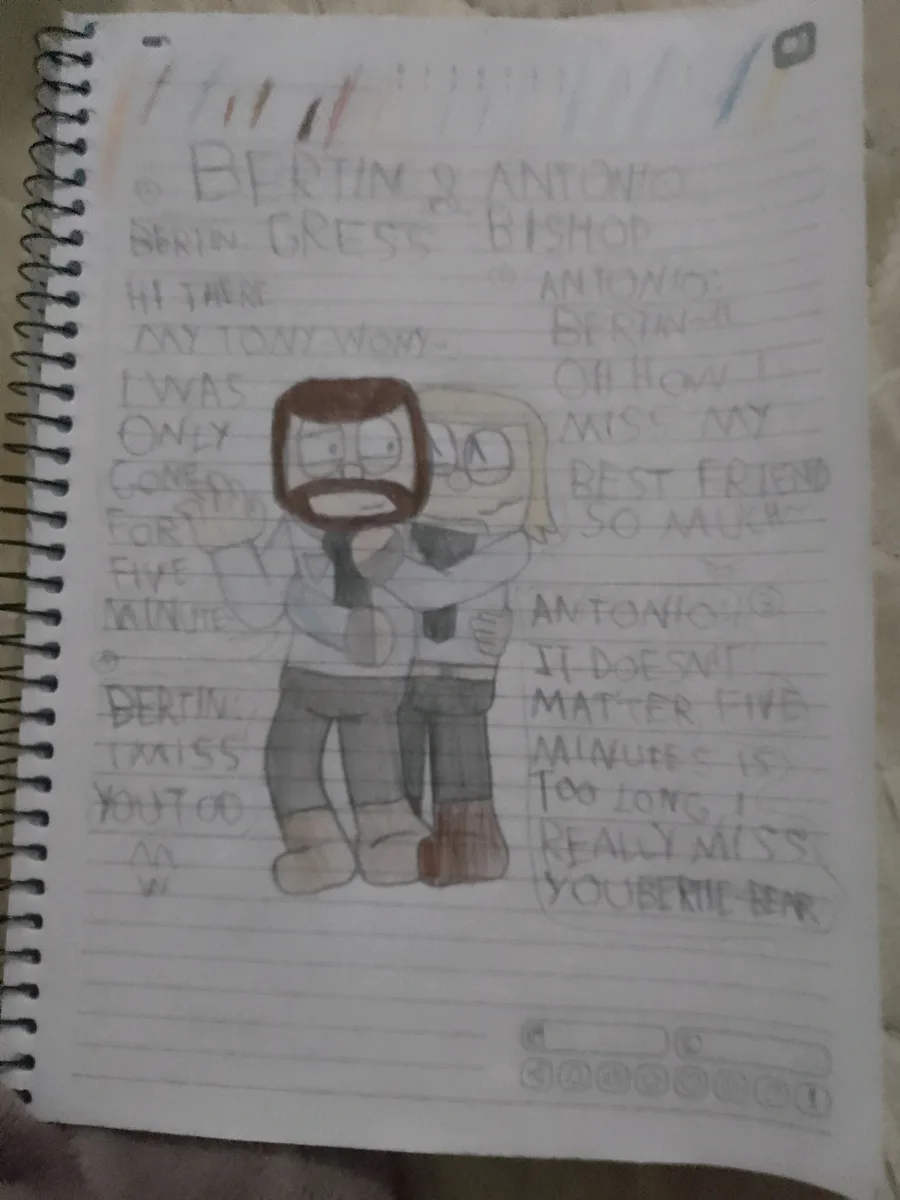 BERTIN & ANTONIO
GRESS BISHOP
ANTONIO:
BERTIN
OH HOW I
MISS MY
BEST FRIEND
SO MUCH~
BERTIN
HI THERE
MY TONY WONY~
I WAS
ONLY
GONED
FOR
FIVE
MINUTE
ANTONIO: 3
IT DOESN'T
MATTER FIVE
MINUTES IS
TOO LONG, I
REALLY MISS
YOU BERTIE BEAR
BERTIN:
I MISS
YOU TOO